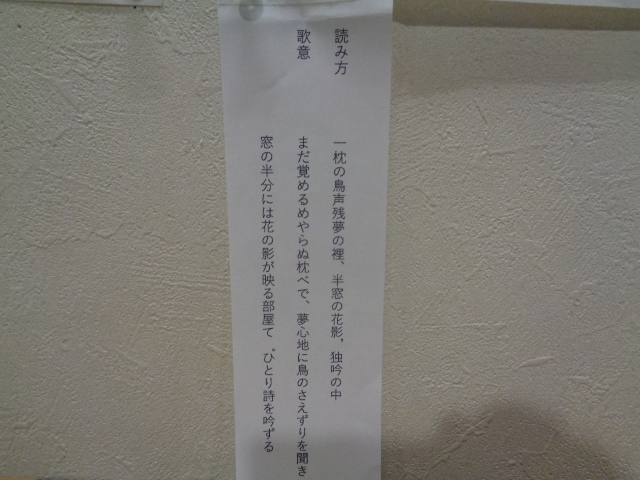 読み方　一枕の鳥声残夢の裡、半窓の花影，独吟の中
歌意　まだ覚めるめやらぬ枕べで、夢心地に鳥のさえずりを聞き
窓の半分には花の影が映る部屋て゛ひとり詩を吟ずる